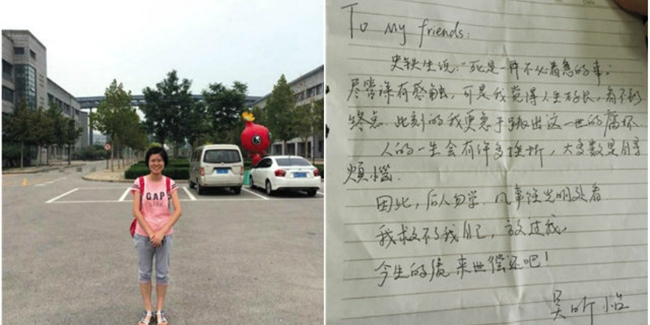 GAP
To My friends:
史铁生说:"死是一件不必着急的事。
尽管深有感触,可是我觉得人生 长,看不到
终点. 此刻的我更急于 出这一世的
人的一生会有许多挫折,大多数是自寻
烦恼.
因此,后人勿学. 凡事往光明处看
我救不了我自己,放过我,
今生的债 来世偿还吧!
吴昕怡